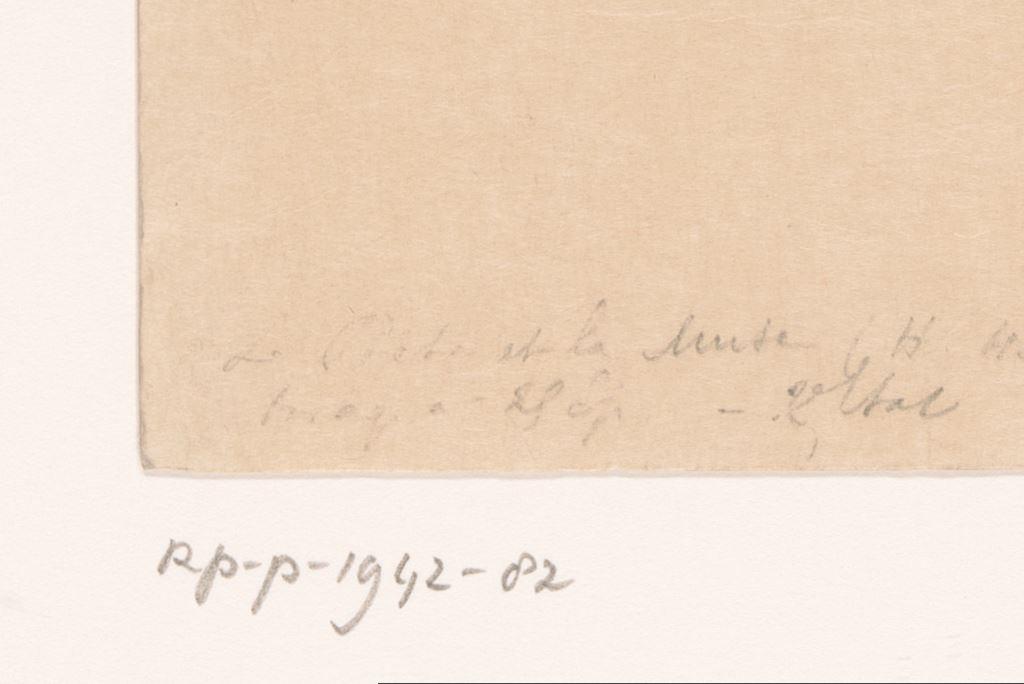 Le Poète et la Muse (H
tirage à 25 ép. – 2e Etat
RP-P-1942-82